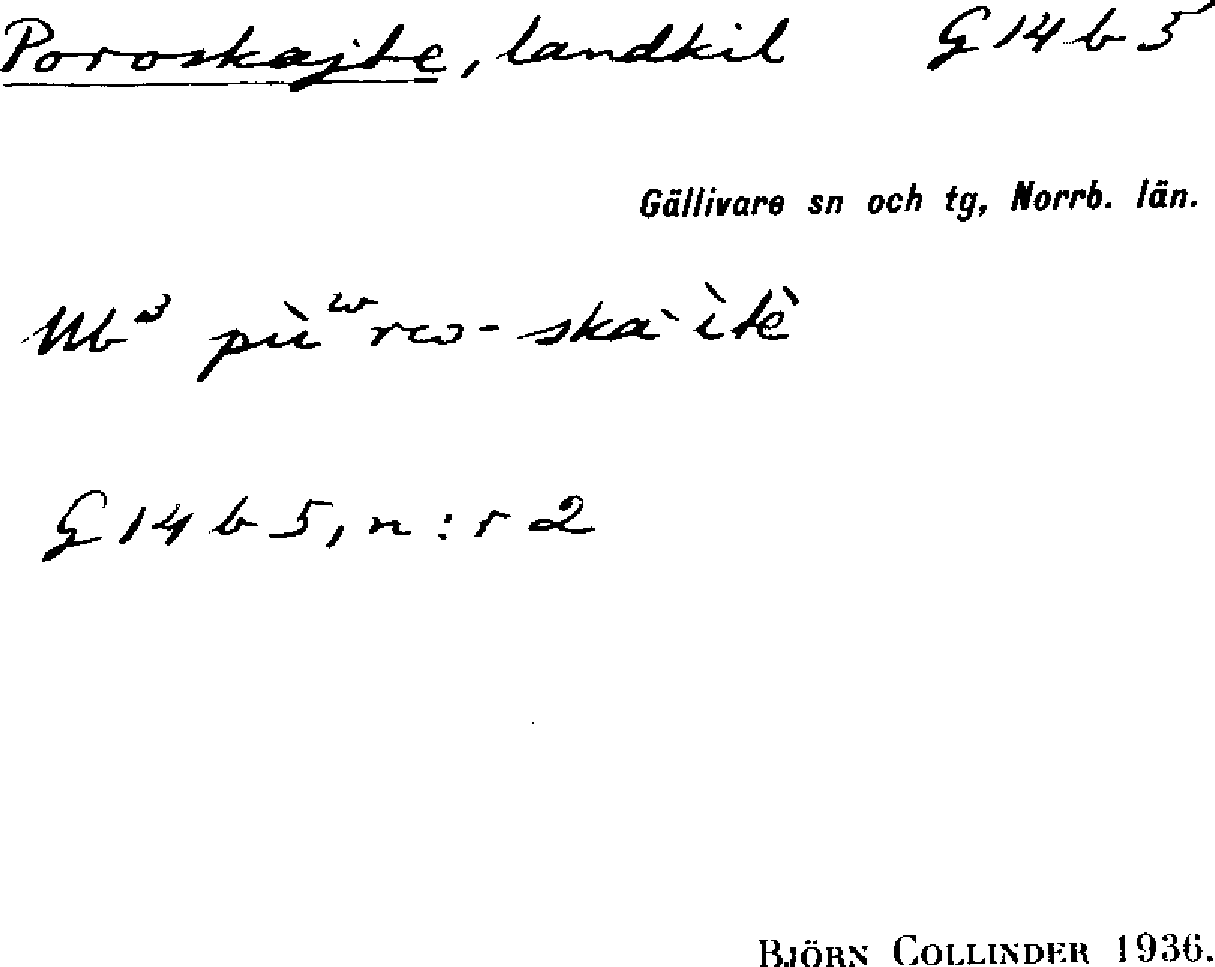 Poroskajte, landkil G 14 b 5
Gällivare sn och tg, Norrb. län.
pùʷrω-skàìtè
G 14 b 5, n:r 2
BJÖRN COLLINDER 1936.